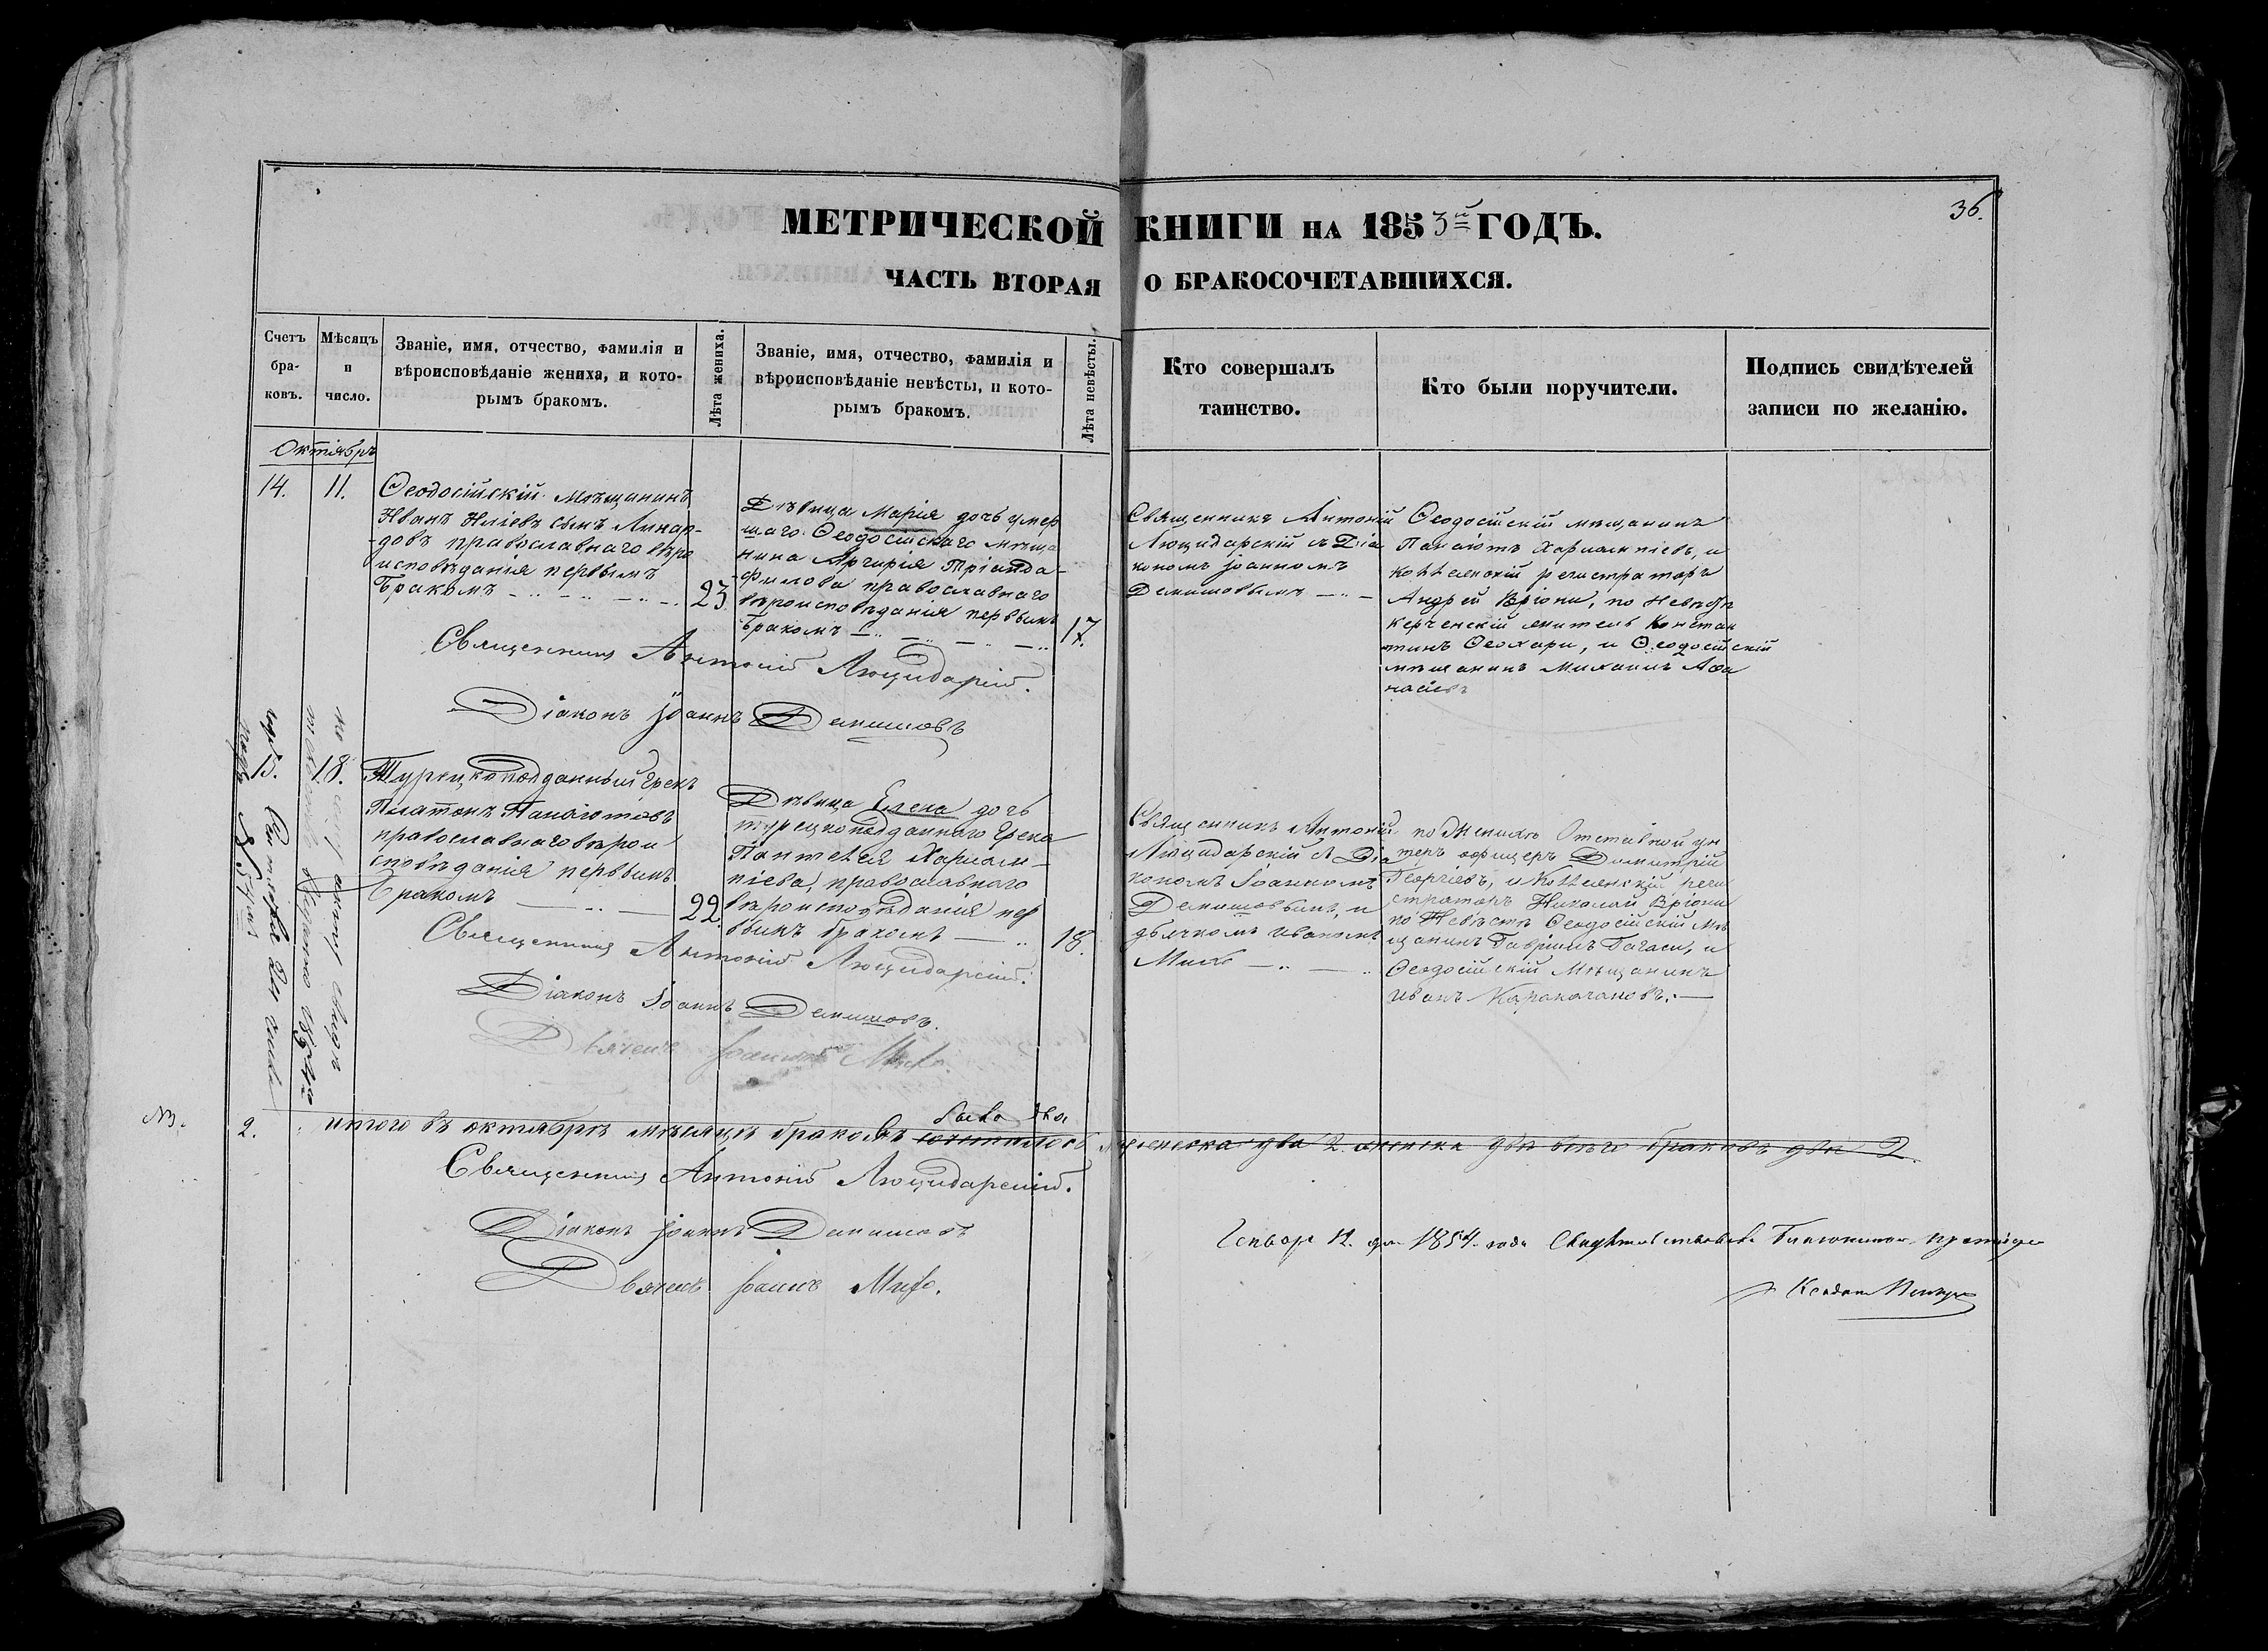 36.
МЕТРИЧЕСКОЙ КНИГИ НА 1853й ГОДЪ.
ЧАСТЬ ВТОРАЯ О БРАКОСОЧЕТАВШИХСЯ.
Счетъ браковъ.
Мѣсяцъ и число.
Званіе, имя, отчество, фамилія и
вѣроисповѣданіе жениха, и кото-
рымъ бракомъ.
Лѣта жениха.
Званіе, имя, отчество, фамилія и
вѣроисповѣданіе невѣсты, и кото-
рымъ бракомъ.
Лѣта невѣсты.
Кто совершалъ
таинство.
Кто были поручители.
Подпись свидѣтелей
записи по желанію.
Октябрь
14. 11.
Ѳеодосійскій мѣщанинъ
Иванъ Иліевъ сынъ Линар-
довъ православнаго вѣро
исповѣданія первымъ
бракомъ 23.
Дѣвица Марія дочь умер
шаго Ѳеодосійскаго мѣща
нина Аргирія Тріанда-
филова православнаго
вѣроисповѣданія первымъ
бракомъ 17.
Священникъ Антоній
Люцидарскій съ Діа
кономъ Іоанномъ
Демишовымъ
Ѳеодосійскій мѣщанинъ
Панаіотъ Харлампіевъ, и
коллежскій регистраторъ
Андрей Вріони, по Невѣстѣ
керченскій житель Констан
тинъ Ѳеохари, и Ѳеодосійскій
мѣщанинъ Михаилъ Аѳа
насіевъ
Священникъ Антоній Люцидарскій.
Діаконъ Іоаннъ Демишовъ
15. 18.
Турецкоподданный Грекъ
Платонъ Панаіотовъ
православнаго вѣрои
сповѣданія первымъ
бракомъ 22.
Дѣвица Елена дочь
турецкоподданного Грека
Пантелея Харлам-
піева, православнаго
вѣроисповѣданія пер
вымъ бракомъ 18.
Священникъ Антоній
Люцидарскій съ Діа
кономъ Іоанномъ
Демишовымъ, и
дьячкомъ Иваномъ
по Женихѣ Отставной ун
теръ офицеръ Димитрій
Георгіевъ, и Коллежскій реги
страторъ Николай Вріони
по Невѣстѣ Ѳеодосійскій Мѣ
щанинъ Гавріилъ Багаси, и
Ѳеодосійскій Мѣщанинъ
Иванъ Каракачановъ.
Священникъ Антоній Люцидарскій.
Діаконъ Іоаннъ Демишовъ.
Дьячекъ Іоаннъ
2. итого въ октябрѣ мѣсяцѣ браковъ было два
Священникъ Антоній Люцидарскій.
Діаконъ Іоаннъ Демишовъ
Дьячекъ Іоаннъ
12. 1854. года